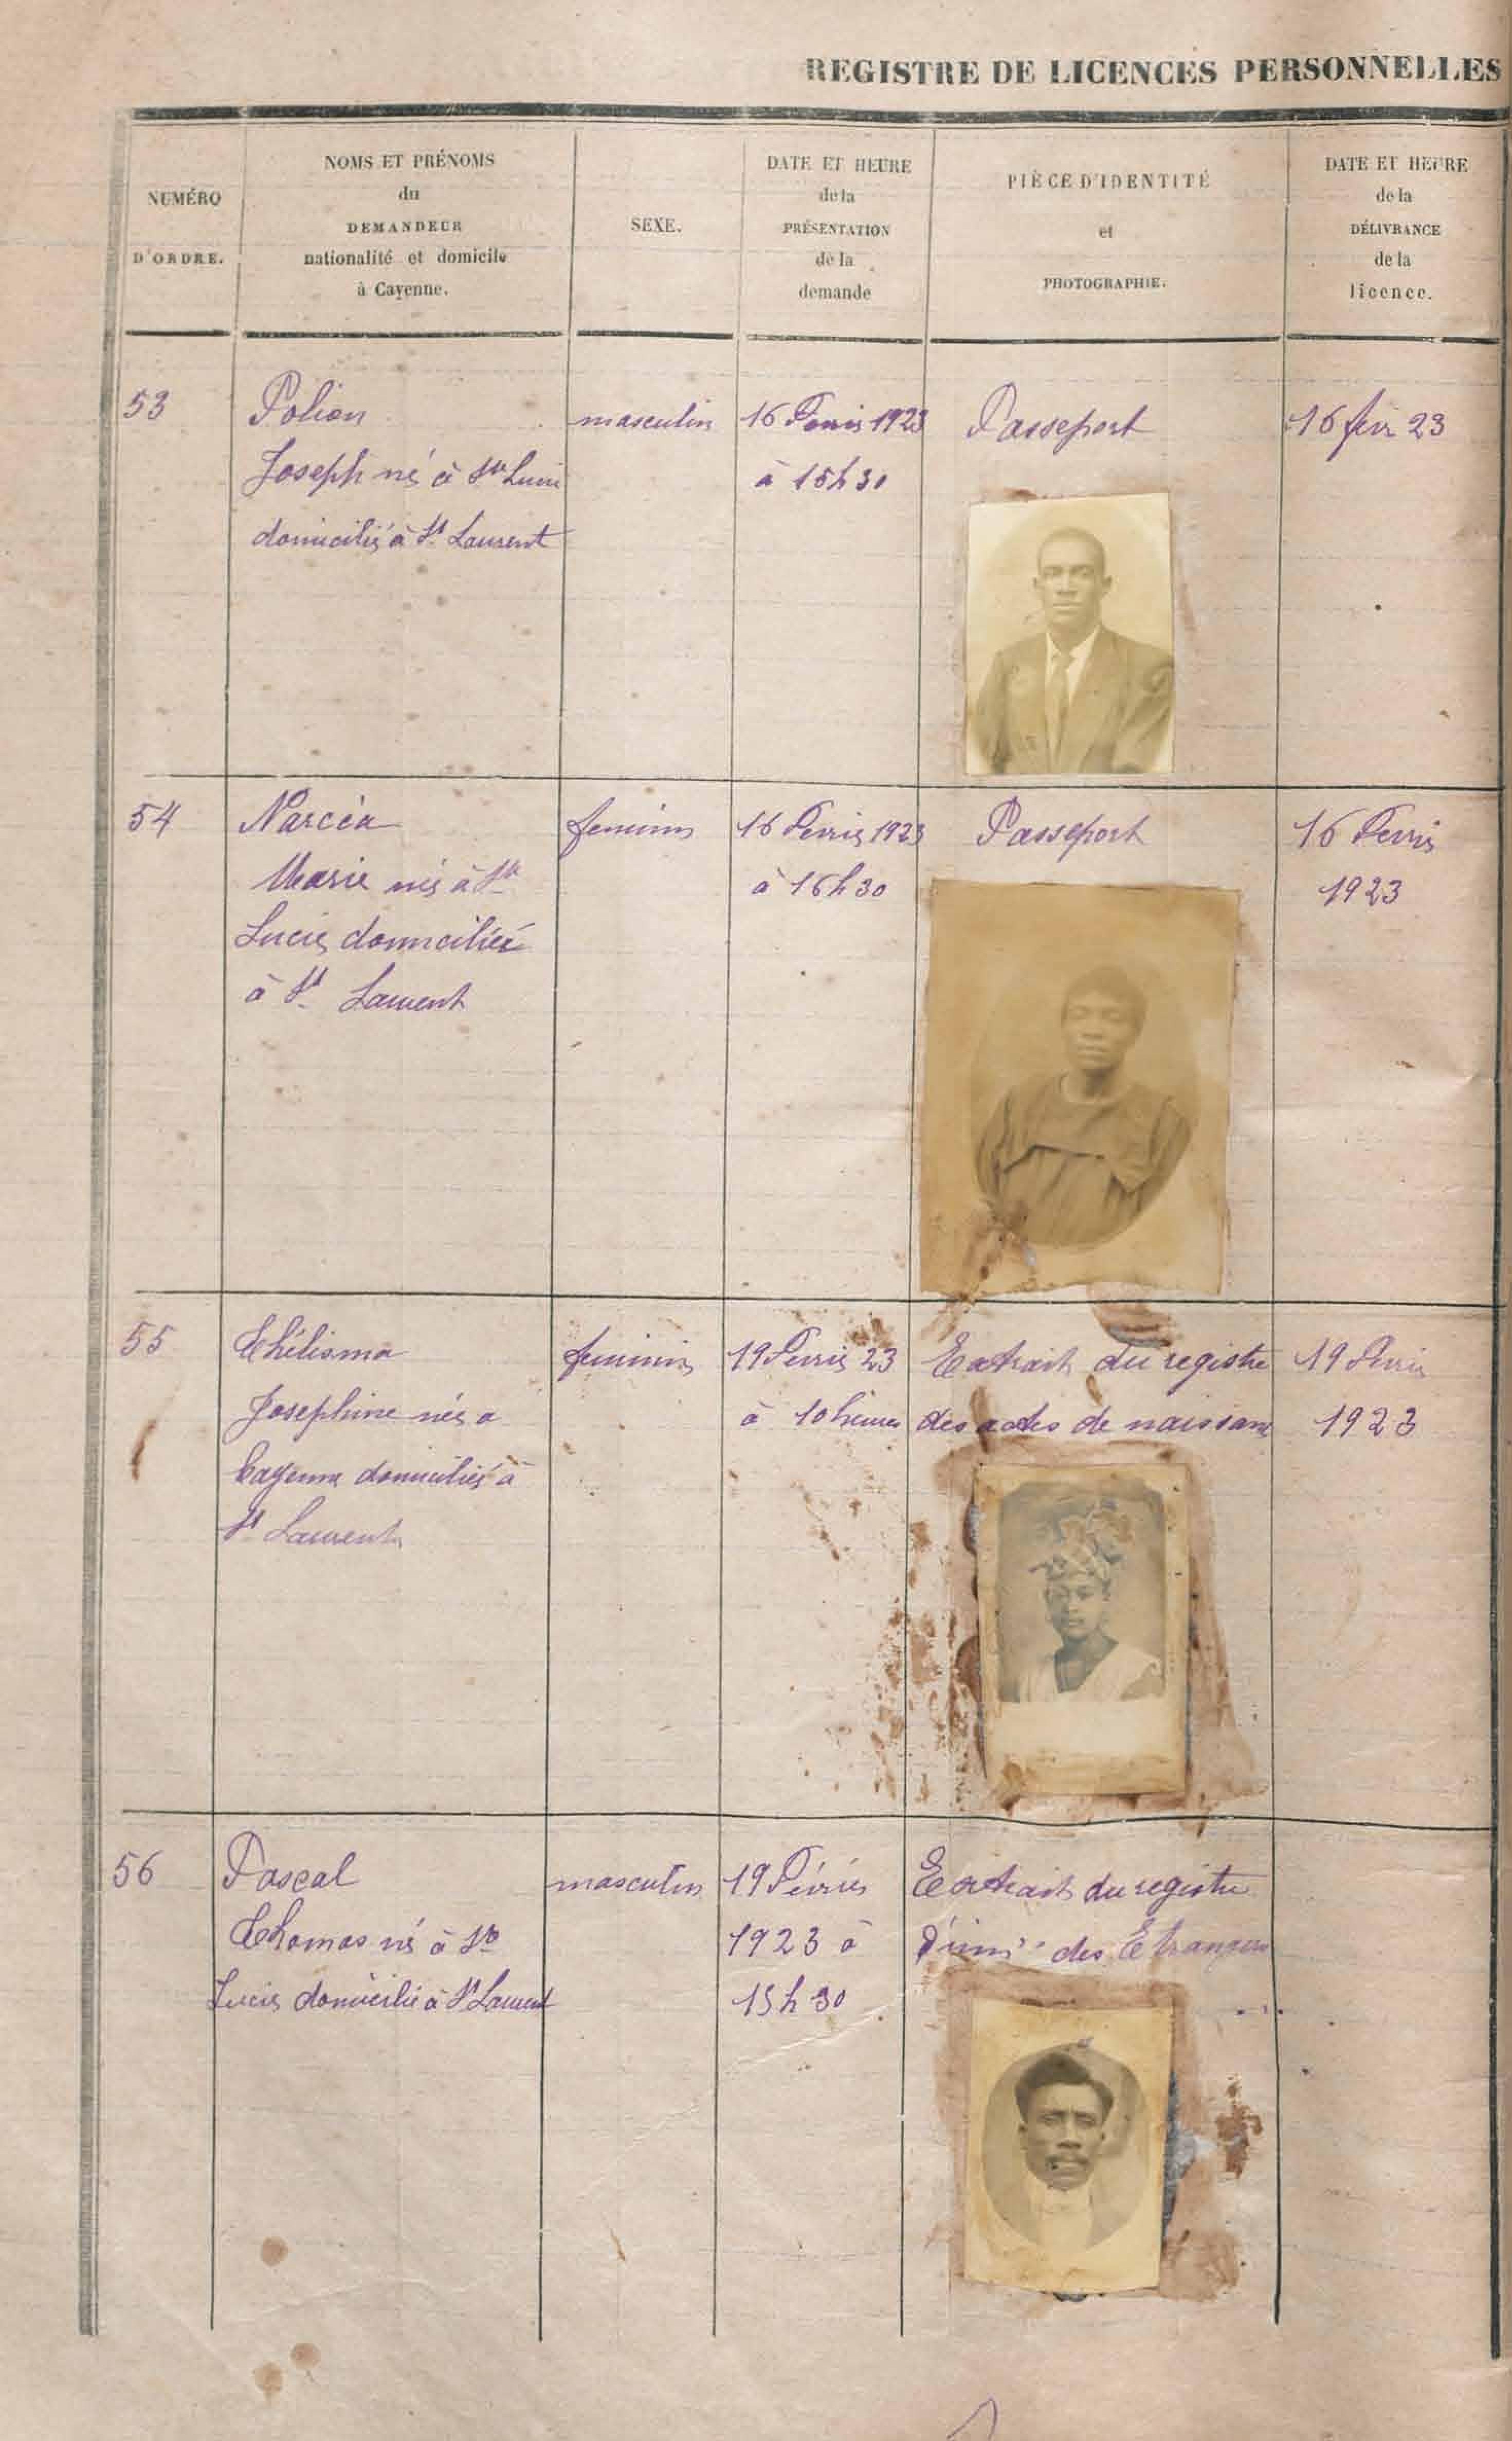 REGISTRE DE LICENCES PERSONNELLES
NUMÉRO
D'ORDRE.
NOMS ET PRÉNOMS
du
DEMANDEUR
nationalité et domicile
à Cayenne.
SEXE.
DATE ET HEURE
de la
PRÉSENTATION
de la
demande
PIÈCE D'IDENTITÉ
et
PHOTOGRAPHIE.
DATE ET HEURE
de la
DÉLIVRANCE
de la
licence.
53
Polion
Joseph né à Ste Lucie
domicilié à St Laurent
masculin
16 Fevrier 1923
à 15h30
Passeport
16 fevr 23
54
Narcéa
Marie née à Ste
Lucie domiciliée
à St Laurent
feminin
16 Fevrier 1923
à 16h30
Passeport
16 Fevrier
1923
55
Thélisma
Josephine née a
Cayenne domiciliée à
St Laurent
feminin
19 Fevrier 23
à 10 heures
Extrait du registre
des actes de naissance
19 Fevrier
1923
56
Pascal
Thomas né à Ste
Lucie domicilié à St Laurent
masculin
19 Février
1923 à
15h30
Extrait du registre
d'imm des Etrangers